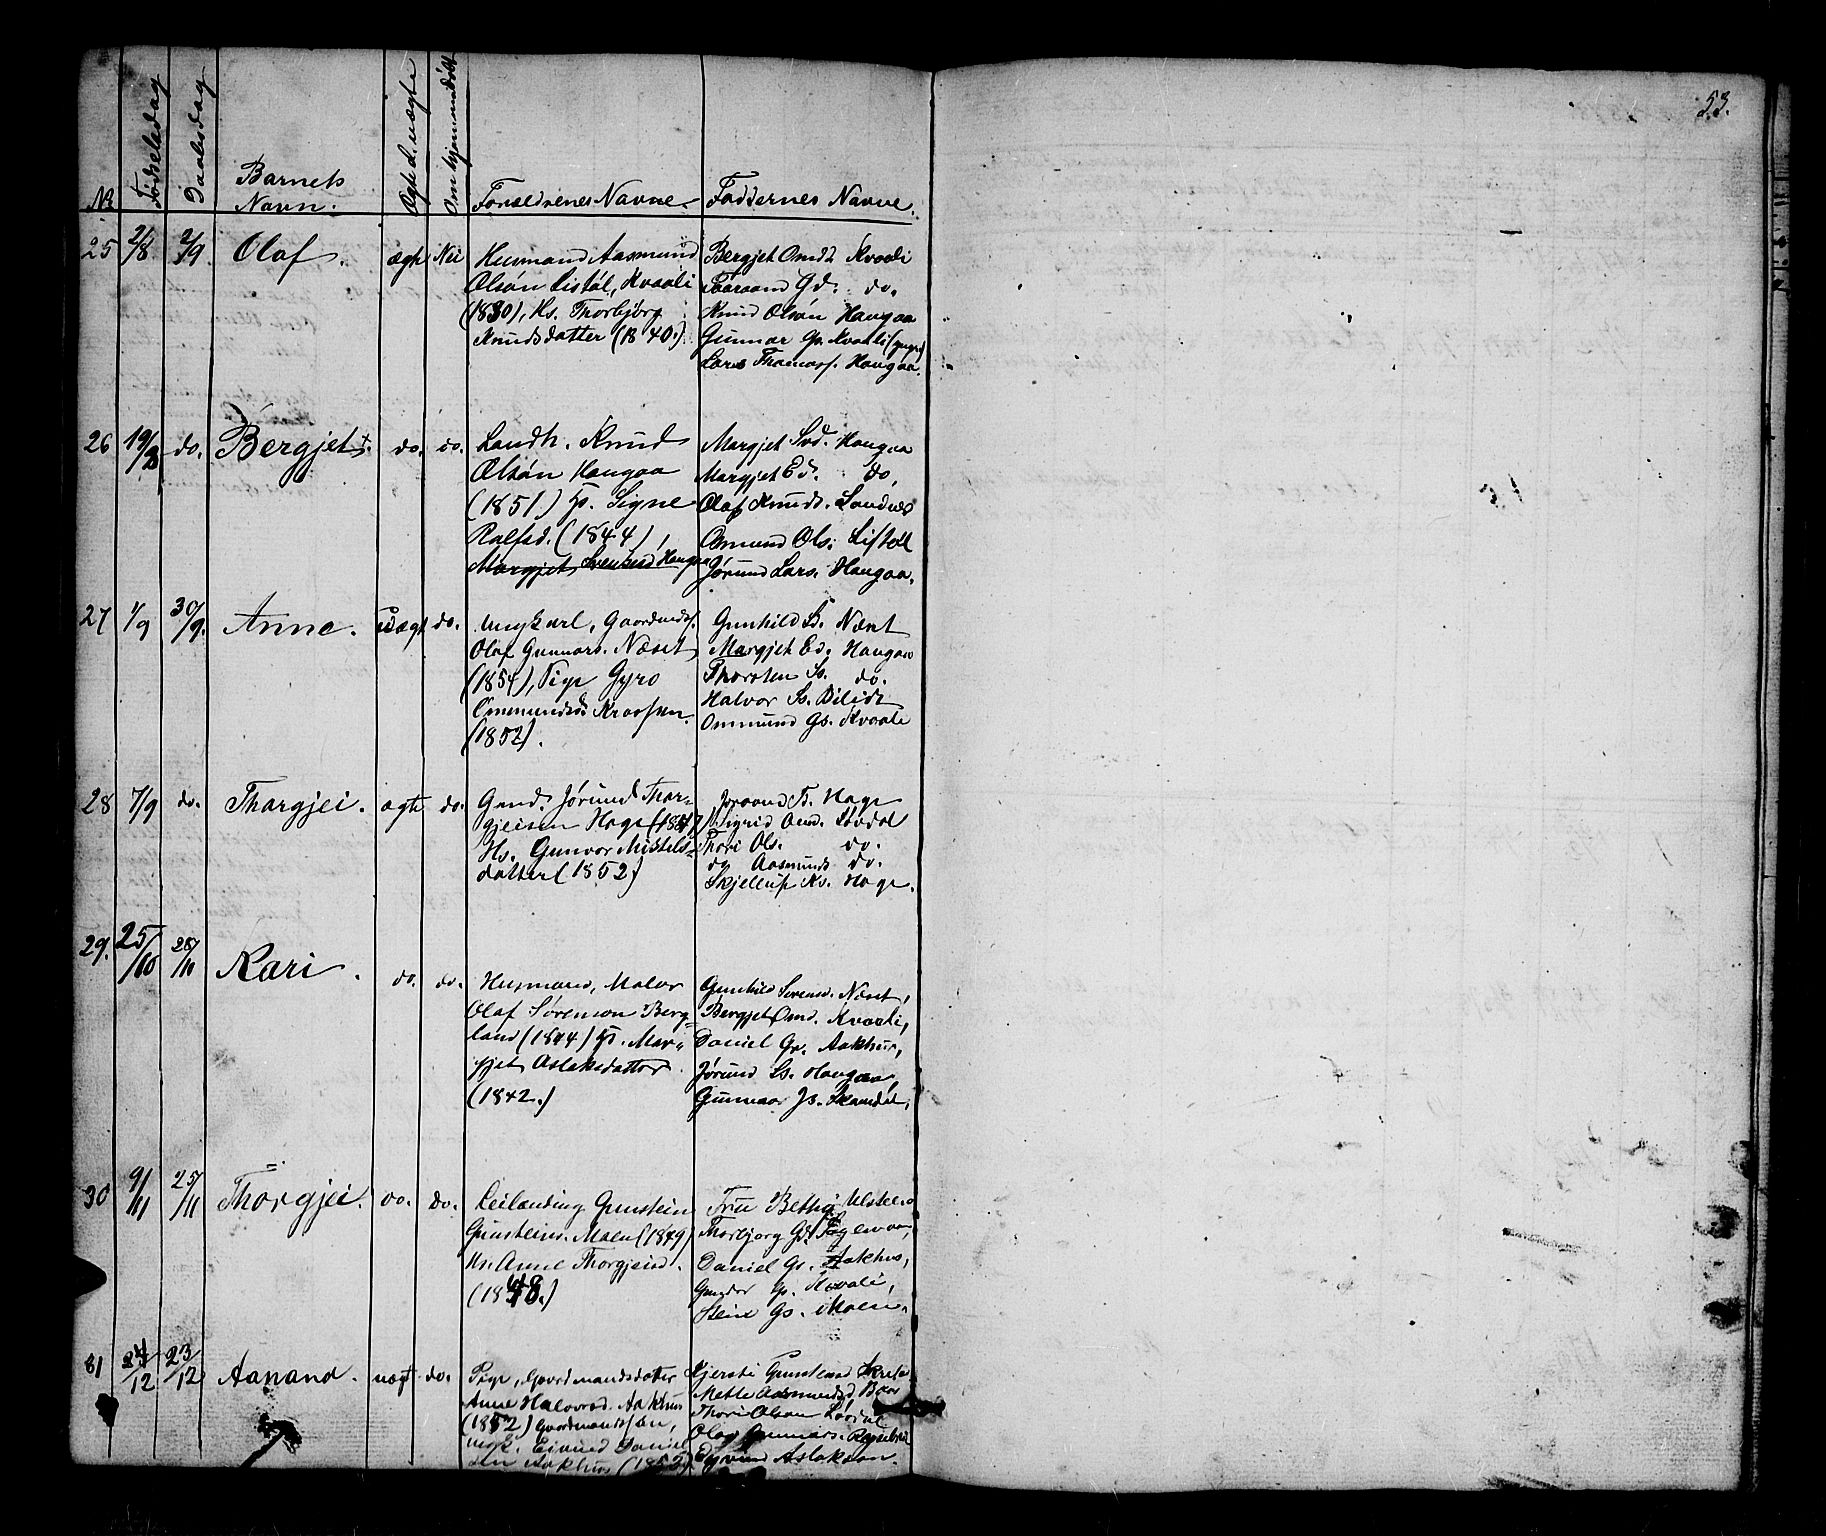 53.
No
Fødselsdag
Daabsdag
Barnets
Navn.
Ægte d. uægte
Om hjemmedøbt
Forældrenes Navne
Faddernes Navne.
25 2/8 2/9. Olaf. ægte Nei
Husmand Aasmund
Olsøn Listøl, Kvaali
(1830), Hs. Thorbjørg
Knudsdatter (1840.)
Bergjet Omd. Kvaali
Gd. do.
Knud Olsøn Haugaa
Gunnar Gs. Kvaali (yngre)
Lars Thomass. Haugaa.
26 19/8 do. Bergjet + do. do.
Landh. Knud
Olsøn Haugaa
(1851) Hs. Signe
Rolfsd. (1844),
Margjet Svensd Haugaa
Margjet Svd. Haugaa
Margjet Ed. do,
Olaf Knuds. Landnes
Omund Ols. Listøl
Jørund Lars. Haugaa.
27 1/9 30/9. Anne. uægt do.
Ungkarl, Gaardmds.
Olaf Gunnars. Næset
(1854), Pige Gyro
Ommundsd.
(1852).
Gunhild Sd. Næset
Margjet Ed. Haugaa
Thorsten Ss. do.
Halvor Ss. Bilidt
Ommund Gs. Kvaale
28 7/9 do. Thorgjei. ægte do.
Gmd. Jørund Thor-
gjeisen Hage (1851)
Hs. Gunvor Mikkels-
datter (1852)
Joraand T. Hage
Sigrid Omd. Løvdal
Thori Ols. do.
do Aasmunds do.
Skjelluf Kv. Hage.
29. 25/10 28/11 Kari. do. do.
Husmand, Maler
Olaf Sørenson Berg-
land (1844) Hs. Mar-
gjet Aslaksdatter
(1842.)
Gunhild Sørensd. Næset,
Bergjet Omd. Kvaali,
Daniel Gr. Aakhus,
Jørund Ls. Haugaa
Gunnar Js. Skomdal,
30 9/11 25/11 Thorgjei. do. do.
Leilænding Gunstein
Gunsteins. Moen (1849)
Hs. Anne Thorgjeisd.
(1848.)
Fru Betha
Thorbjørg Gd.
Daniel Gr. Aakhus,
Gunder Gs. Kvaali,
Stein Gs. Moen.
31 24/12 23/12 Aanand. uægt do.
Pige, Gaardmandsdatter
Anne Halvorsd. Aakhus
(1852) Gaardmandssøn,
Ungk. Eivind Daniel
sen Aakhus (1855)
Kjersti Gunsteinsd
Mette Aasmundsd Baas
Thori Olson Løvdal
Olav Gunnars.
Eyvind Aslakson.